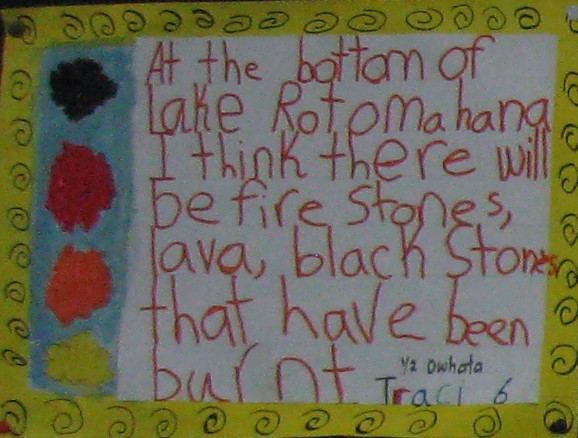 At the bottom of
Lake Rotomahana
I think there will
be fire stones,
lava, black stones
that have been
burnt
Y2 Owhata
Traci 6